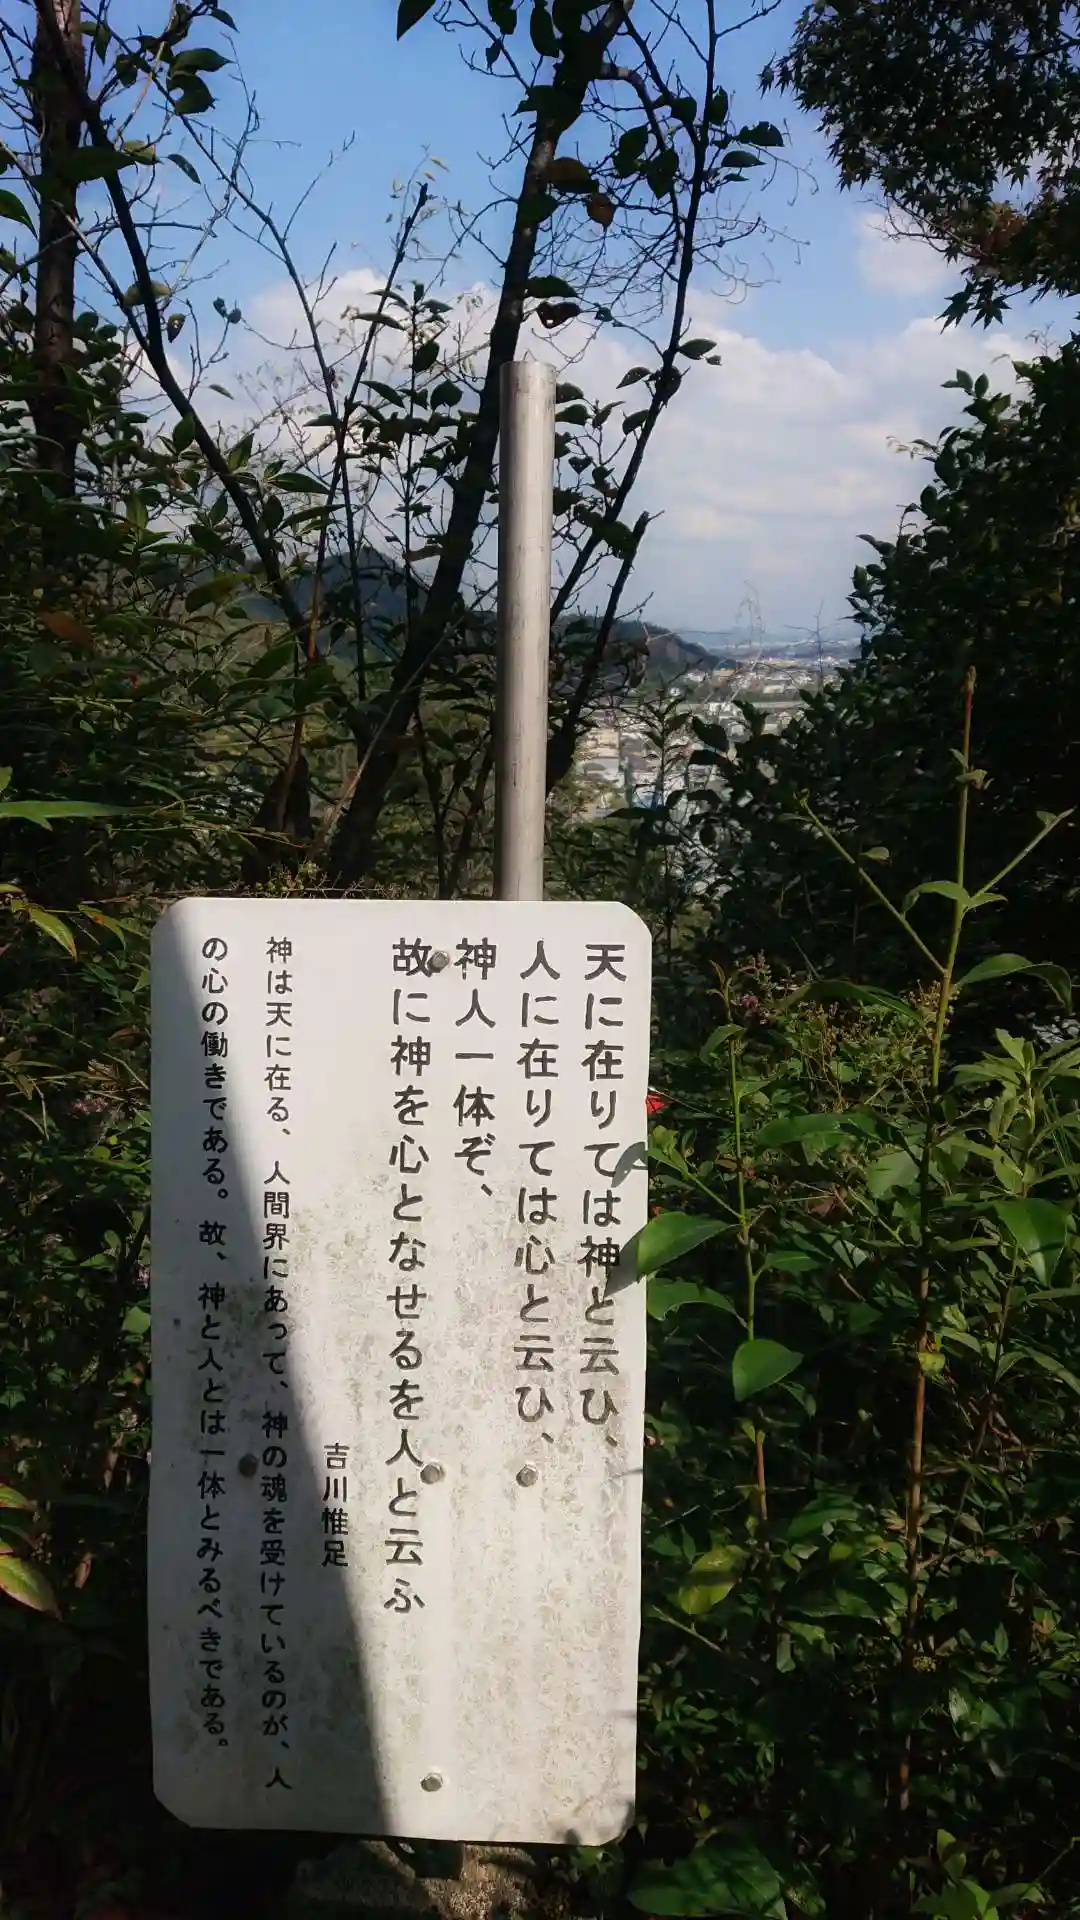 天に在りては神と云ひ、
人に在りては心と云ひ、
神人一体ぞ、
故に神を心となせるを人と云ふ
吉川惟足
神は天に在る、人間界にあって、神の魂を受けているのが、人
の心の働きである。故、神と人とは一体とみるべきである。